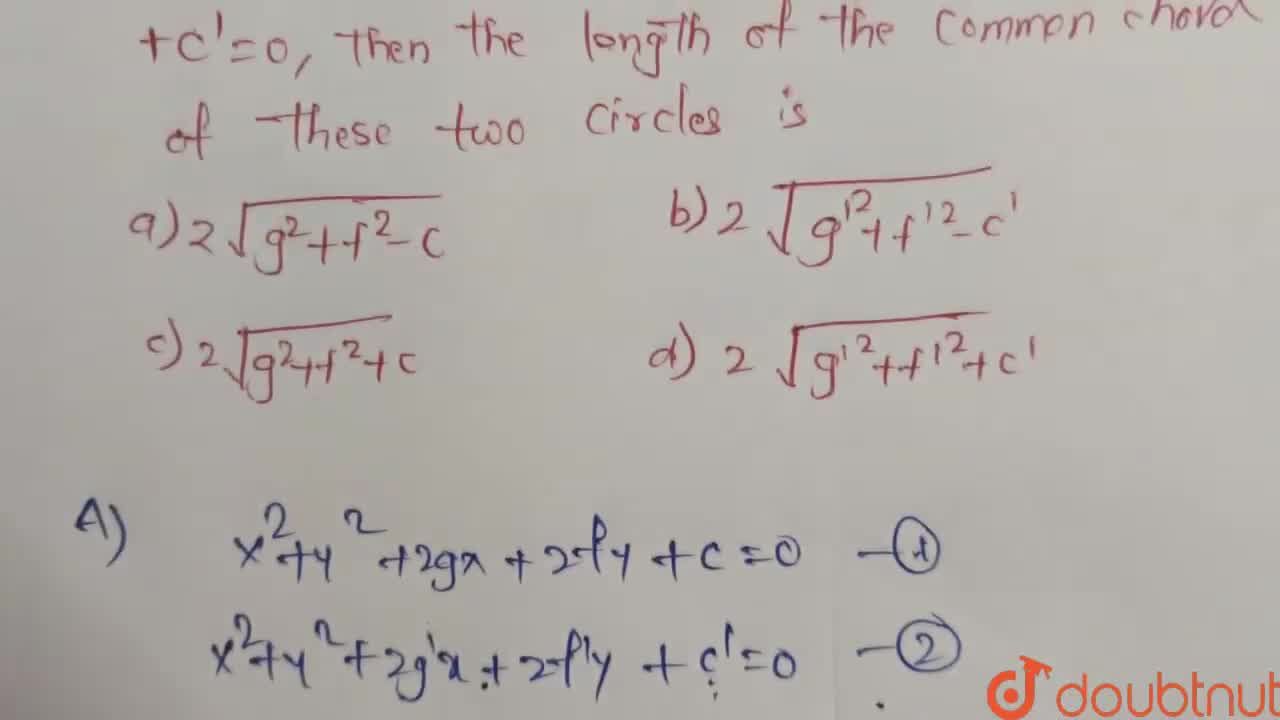 +c'=0, then the length of the common chord
of these two circles is
a) 2√(g²+f²-c) b) 2√(g'²+f'²-c')
c) 2√(g²+f²+c) d) 2√(g'²+f'²+c')
A) x²+y²+2gx+2fy+c=0 -①
x²+y²+2g'x+2f'y+c'=0 -②
doubtnut